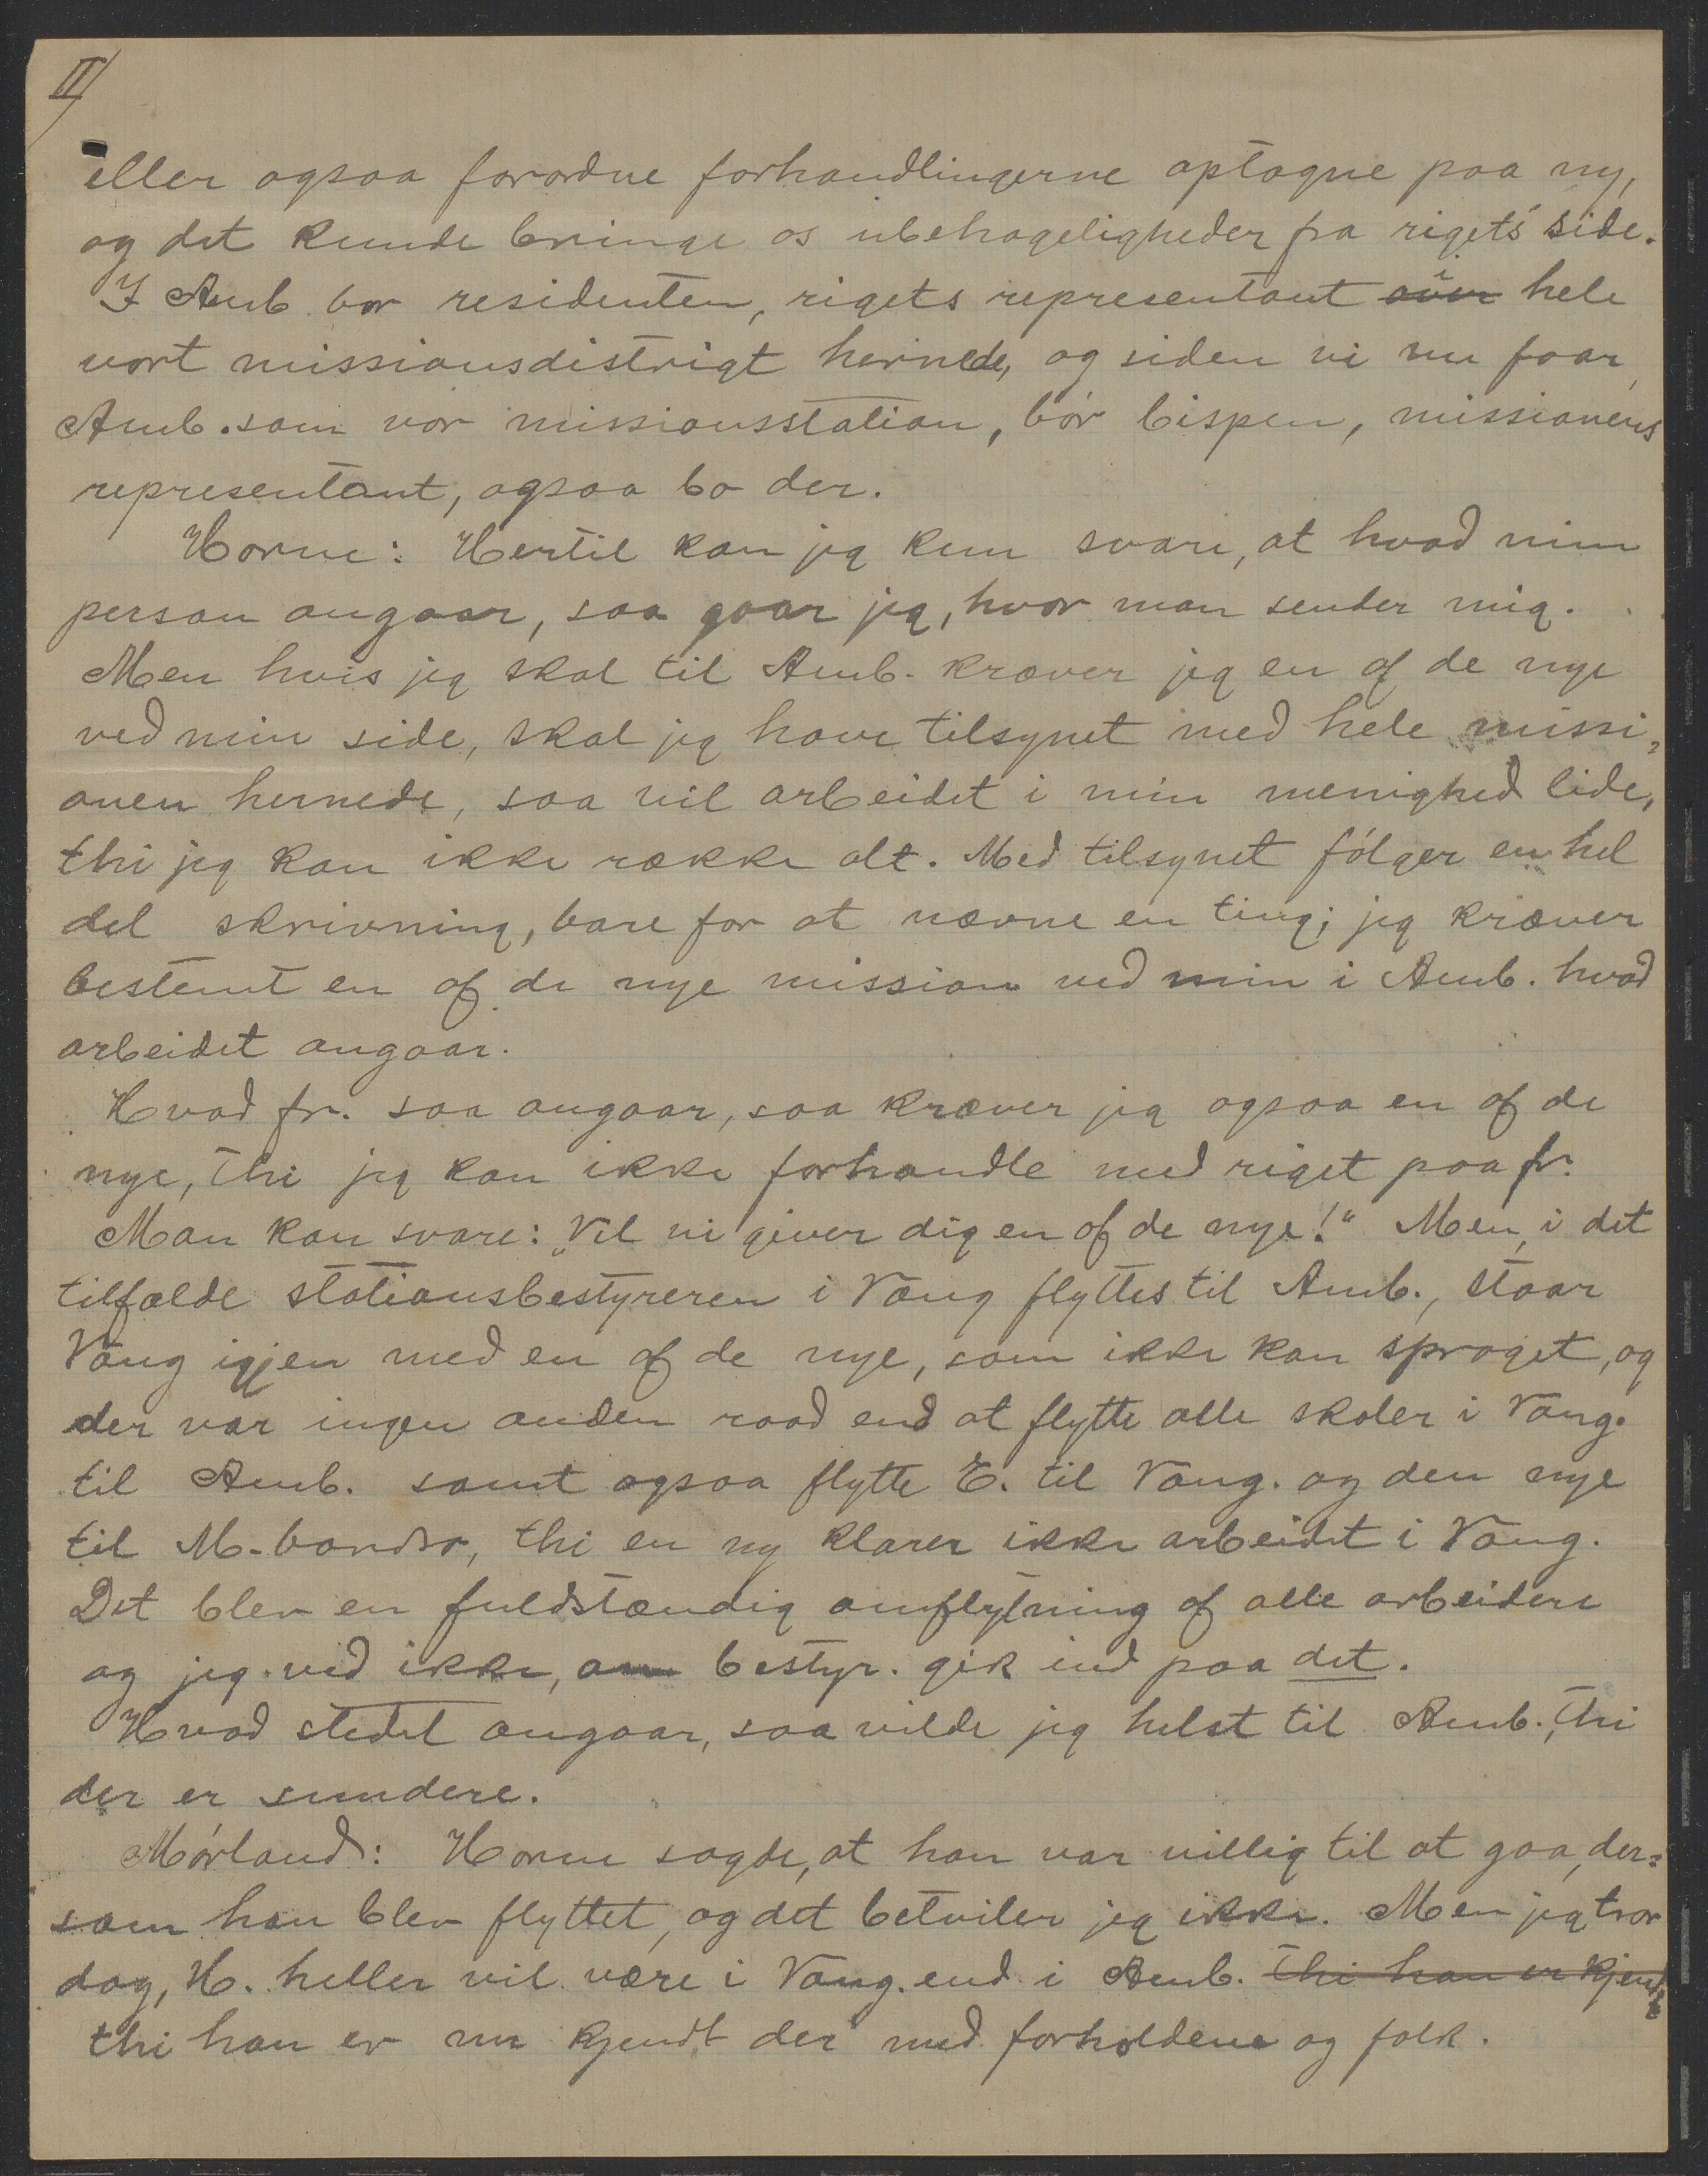 II/
eller ogsaa forordne forhandlingerne optagne paa ny,
og det kunde bringe os ubehageligheder fra rigets side.
I Amb bor residenten, rigets representant i hele
vort missionsdistrigt hernede, og siden vi nu faar
Amb. som vor missionsstation, bór bispen, missionens
representant, ogsaa bo der.
Horne: Hertil kan jeg kun svare, at hvad min
person angaar, saa gaar jeg, hvor man sender mig.
Men hvis jeg skal til Amb. kræver jeg en af de nye
ved min side, skal jeg have tilsynet med hele missi=
onen hernede, saa vil arbeidet i min menighed lide,
thi jeg kan ikke række alt. Med tilsynet fólger en hel
del skrivning, bare for at nævne en ting; jeg kræver
bestemt en af de nye mission ved min i Amb. hvad
arbeidet angaar.
Hvad fr. saa angaar, saa kræver jeg ogsaa en af de
nye, thi jeg kan ikke forhandle med riget paa fr.
Man kan svare: „Vel vi giver dig en af de nye!“ Men, i det
tilfælde stationsbestyreren i Vang flyttes til Amb., staar
Vang igjen med en af de nye, som ikke kan sproget, og
der var ingen anden raad end at flytte alle skoler i Vang.
til Amb. samt ogsaa flytte E. til Vang. og den nye
til M-bondro, thi en ny klarer ikke arbeidet i Vang.
Det blev en fuldstændig omflytning af alle arbeidere
og jeg ved ikke, om bestyr. gik ind paa det.
Hvad stedet angaar, saa vilde jeg helst til Amb., thi
der er sundere.
Mórland: Horne sagde, at han var villig til at gaa, der=
som han blev flyttet, og det betviler jeg ikke. Men jeg tror
dog, H. heller vil være i Vang. end i Amb. thi han er kjendt
thi han er nu kjendt der med forholdene og folk.